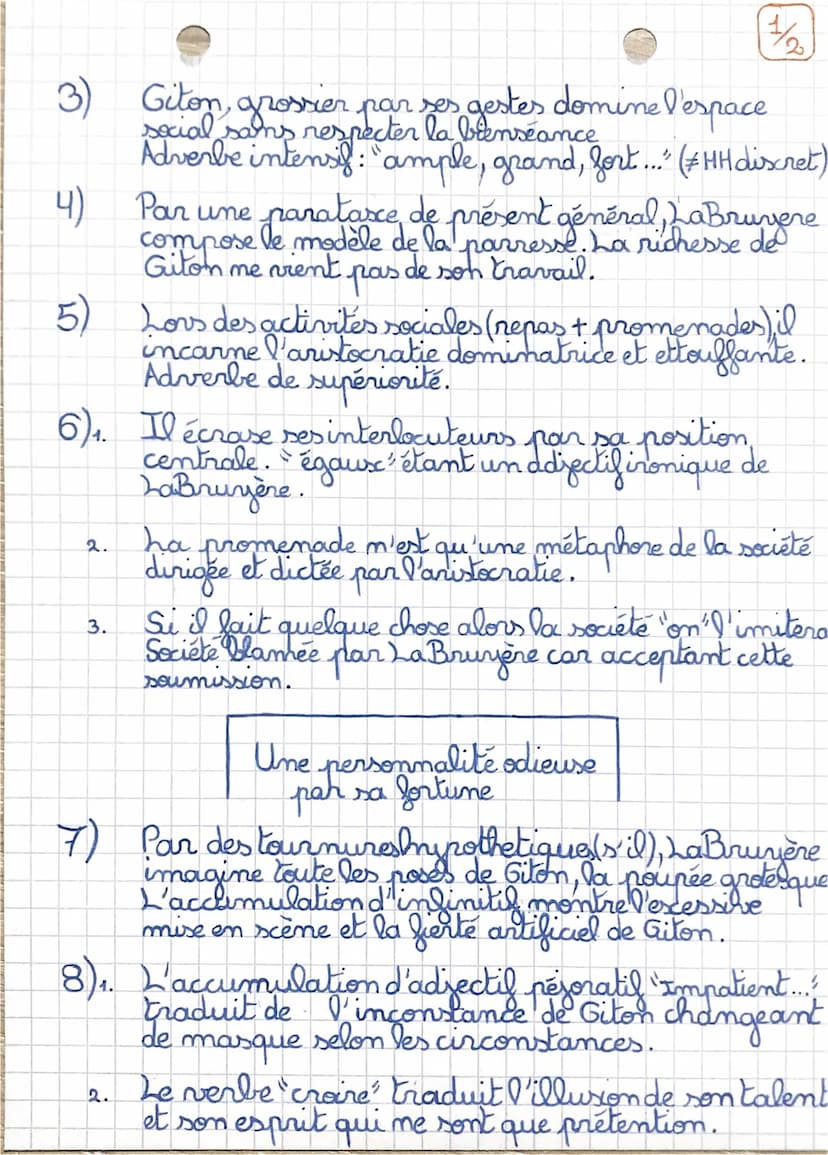 1/2
3) Giton, grossier par ses gestes domine l'espace
social sans respecter la bienséance
Adverbe intensif : "ample, grand, fort..." (≠ HH discret)
4) Par une parataxe de présent général, LaBruyere
compose le modèle de la parresse. La richesse de
Giton ne vient pas de son travail.
5) Lors des activités sociales (repas + promenades), il
incarne l'aristocratie dominatrice et ettouffante.
Adverbe de supériorité.
6) 1. Il écrase ses interlocuteurs par sa position
centrale. "égaux" étant un adjectif ironique de
LaBruyère.
2. La promenade n'est qu'une métaphore de la société
dirigée et dictée par l'aristocratie.
3. Si il fait quelque chose alors la société "on" l'imitera
Société blamée par LaBruyère car acceptant cette
soumission.
Une personnalité odieuse
par sa fortune
7) Par des tournures hypothetique (s'il), LaBruyère
imagine toute les poses de Giton, la poupée grotesque
L'accumulation d'infinitif montre l'excessive
mise en scène et la fierté artificiel de Giton.
8) 1. L'accumulation d'adjectif péjoratif "Impatient..."
traduit de l'inconstance de Giton changeant
de masque selon les circonstances.
2. Le verbe "croire" traduit l'illusion de son talent
et son esprit qui ne sont que prétention.